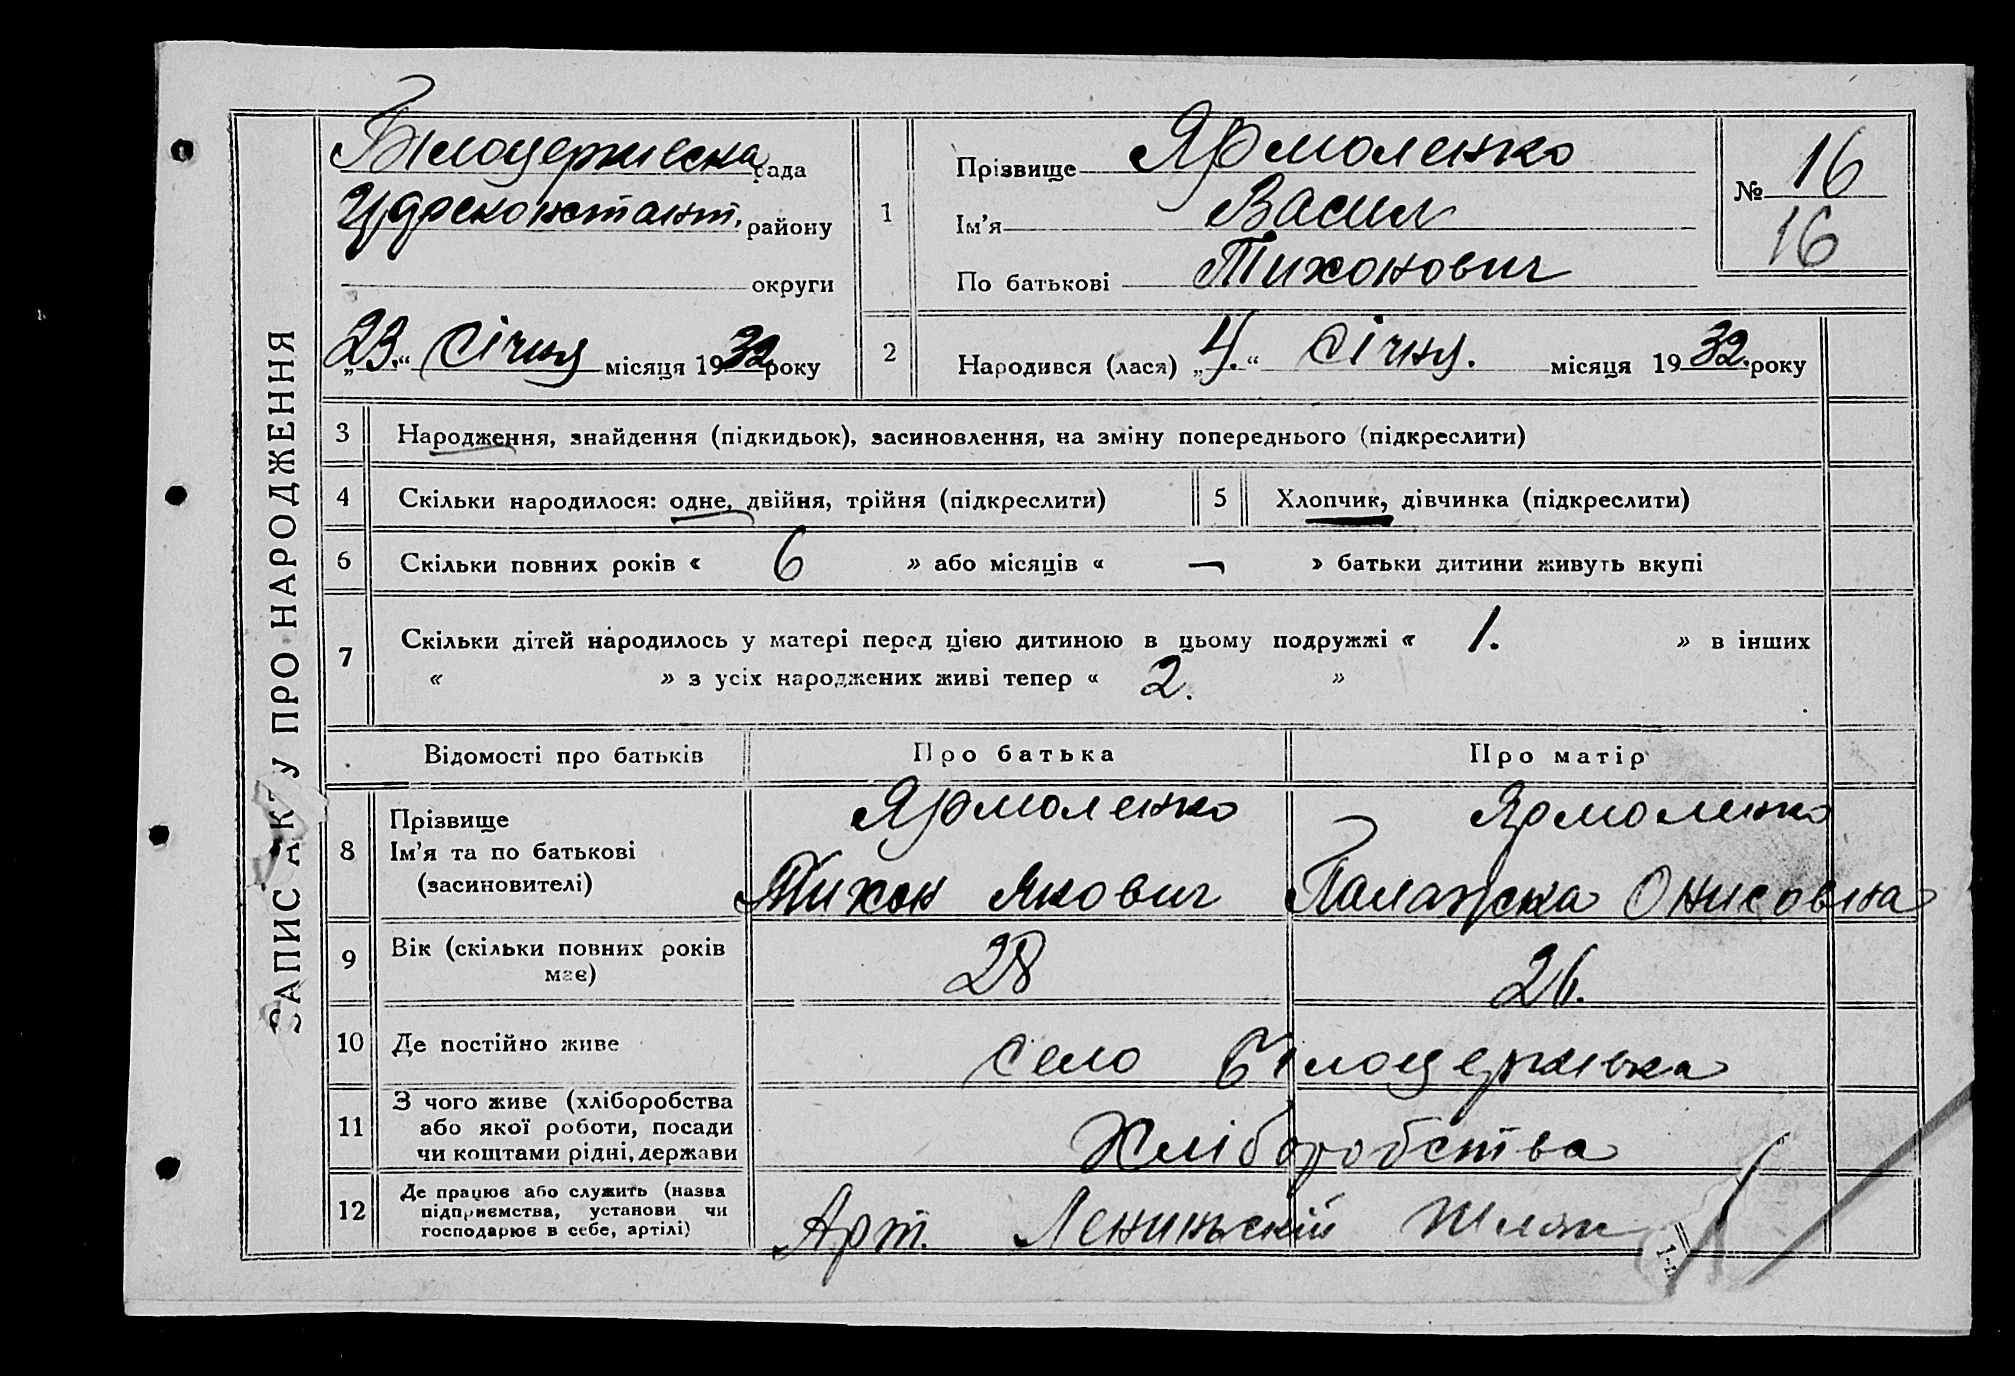 ЗАПИС АКТУ ПРО НАРОДЖЕННЯ
Білоцерківська рада
району
округи
„23.“ Січня місяця 1932 року
1
Прізвище Ярмоленко
Ім'я Васил
По батькові Тихонович
№ 16
16
2 Народився (лася) „4.“ Січня. місяця 1932. року
3 Народження, знайдення (підкидьок), засиновлення, на зміну попереднього (підкреслити)
4 Скільки народилося: одне, двійня, трійня (підкреслити) 5 Хлопчик, дівчинка (підкреслити)
6 Скільки повних років « 6 » або місяців « — » батьки дитини живуть вкупі
7 Скільки дітей народилось у матері перед цією дитиною в цьому подружжі « 1. » в інших
« » з усіх народжених живі тепер « 2. »
Відомості про батьків Про батька Про матір
8 Прізвище Ярмоленко Ярмоленко
Ім'я та по батькові
(засиновителі) Тихон Якович Палажка Онисовна
9 Вік (скільки повних років має) 28 26.
10 Де постійно живе село Білоцерківка
11 З чого живе (хліборобства
або якої роботи, посади
чи коштами рідні, держави Хліборобства
12 Де працює або служить (назва
підприємства, установи чи
господарює в себе, артілі) Арт. Лениньский Шлях